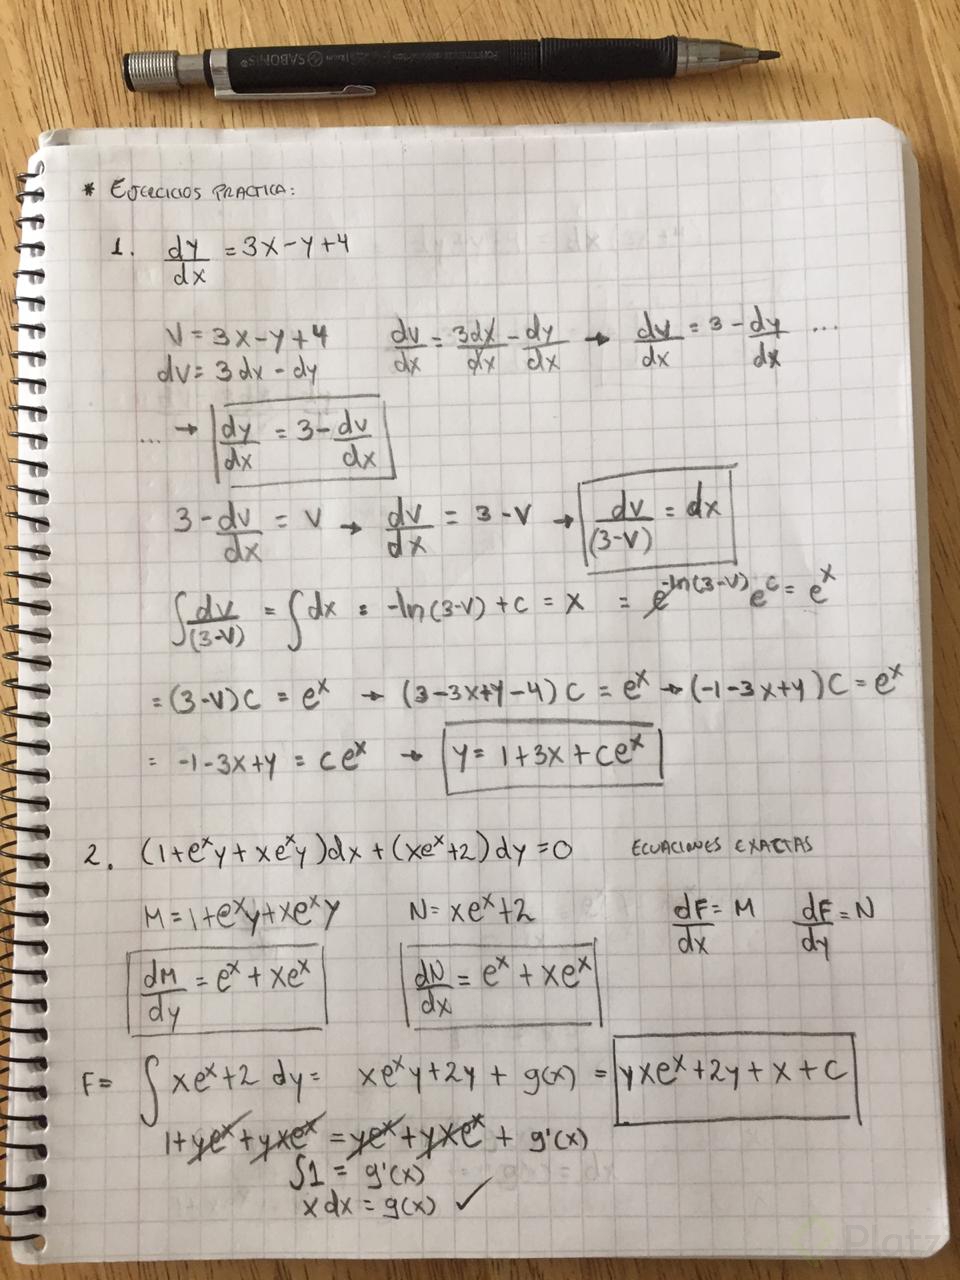 SABONIS
* EJERCICIOS PRACTICA:
1. dy/dx = 3x-y+4
V = 3x-y+4    dv/dx = 3dx/dx - dy/dx → dy/dx = 3 - dy/dx ...
dv = 3dx - dy
... → dy/dx = 3 - dv/dx
3 - dv/dx = V → dv/dx = 3-V → dv/(3-V) = dx
∫ dv/(3-V) = ∫ dx = -ln(3-V) + c = x = e^-ln(3-V) e^c = e^x
= (3-V)C = e^x → (3-3x+y-4)C = e^x → (-1-3x+y)C = e^x
= -1-3x+y = Ce^x → y = 1+3x+Ce^x
2. (1+e^x y+xe^x y)dx+(xe^x+2)dy=0    ECUACIONES EXACTAS
M = 1+e^x y+xe^x y    N = xe^x+2    dF/dx = M    dF/dy = N
dM/dy = e^x + xe^x    dN/dx = e^x + xe^x
F= ∫ xe^x+2 dy = xe^x y+2y + g(x) = yxe^x+2y+x+C
1+ye^x+yxe^x = ye^x+yxe^x + g'(x)
∫1 = g'(x)
x dx = g(x) ✓
Platz